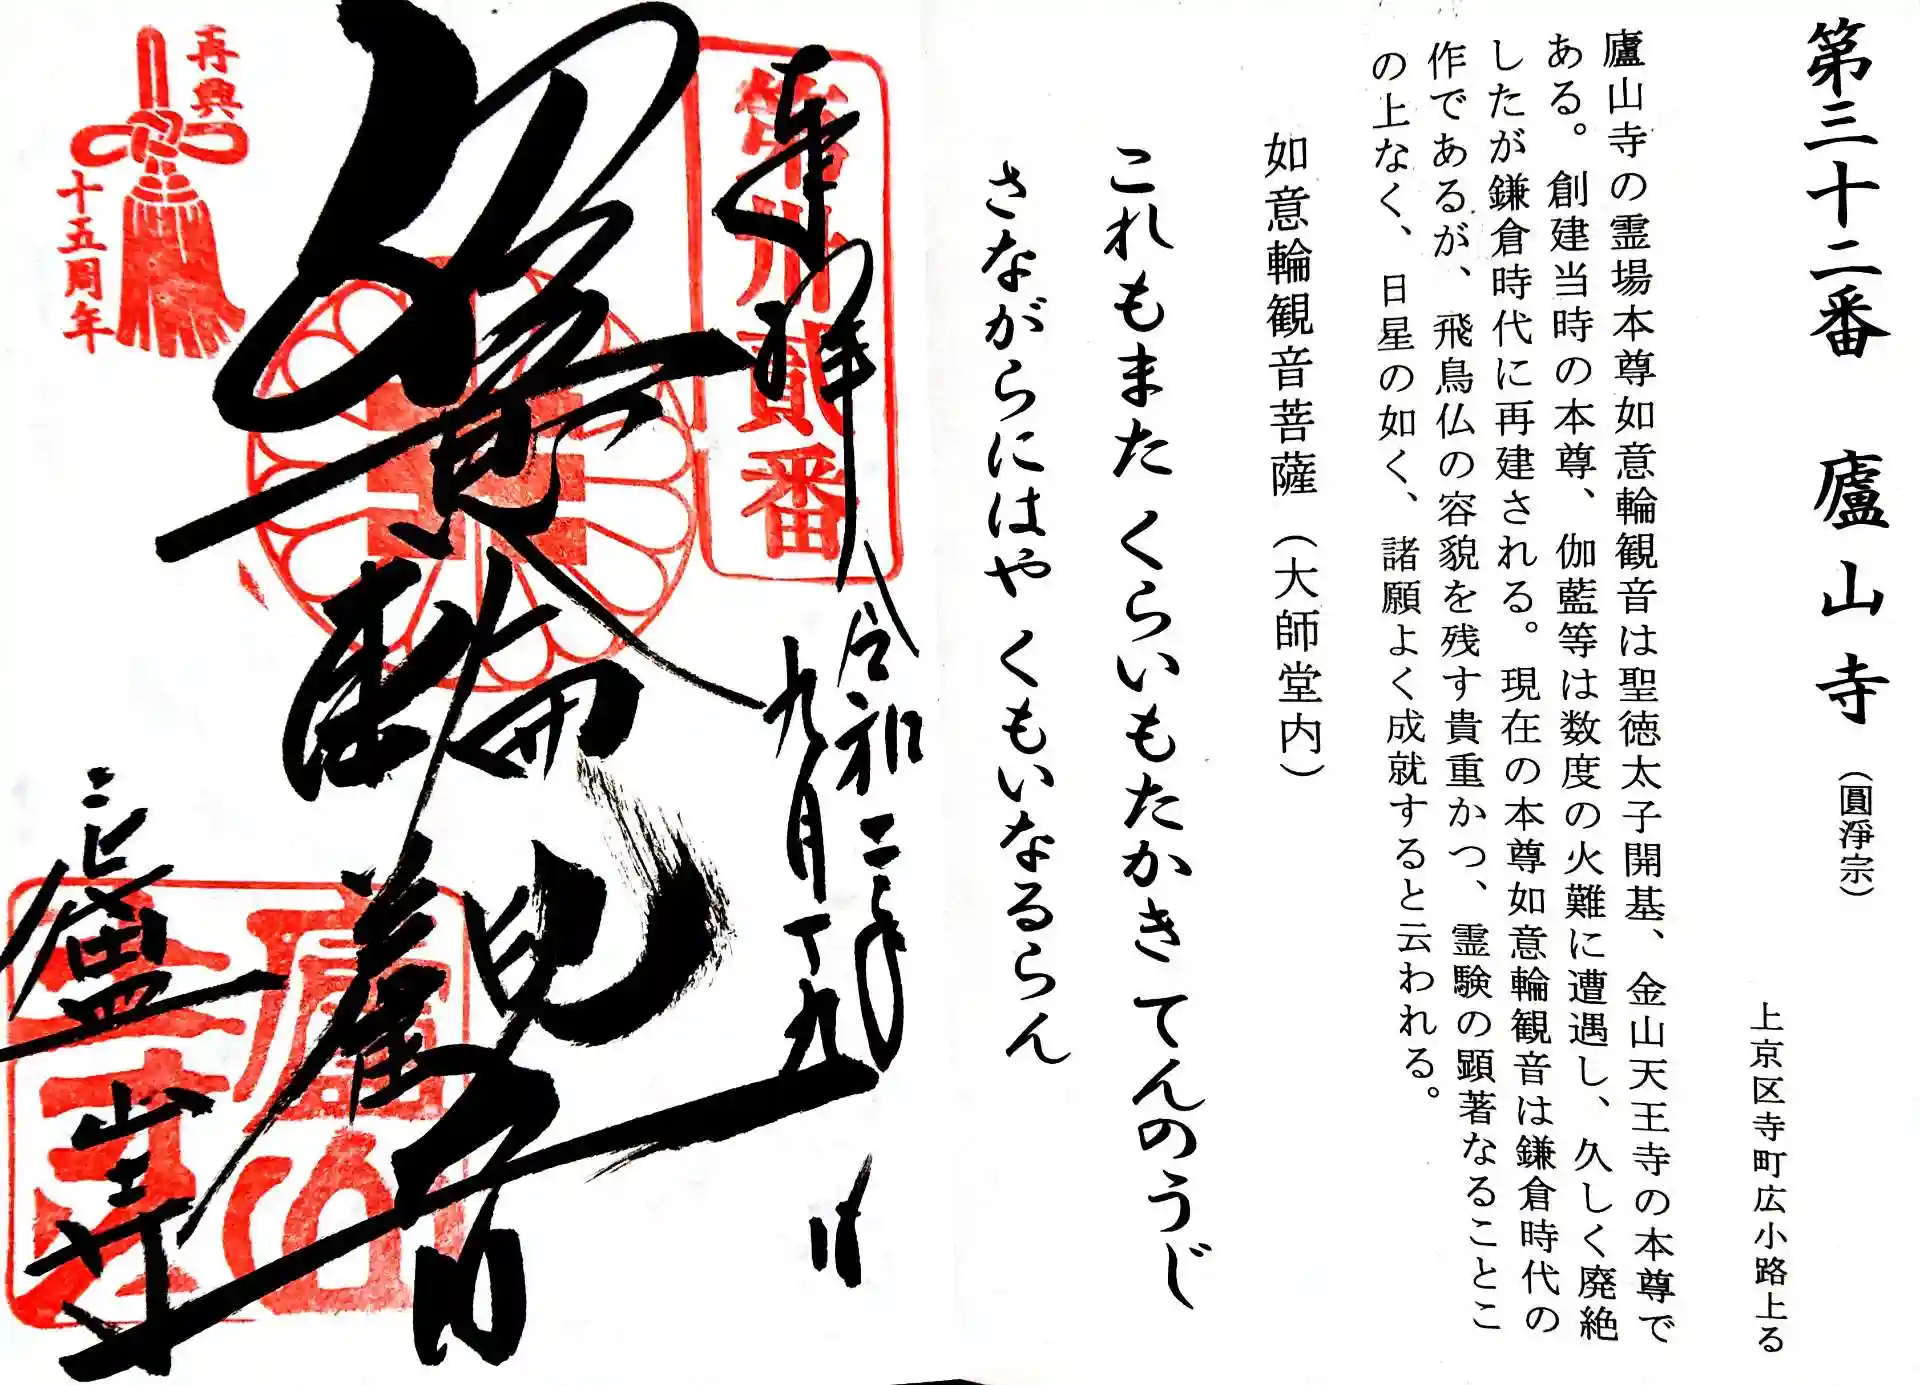 第三十二番 廬山寺（圓淨宗）
上京区寺町広小路上る
廬山寺の霊場本尊如意輪観音は聖徳太子開基、金山天王寺の本尊で
ある。創建当時の本尊、伽藍等は数度の火難に遭遇し、久しく廃絶
したが鎌倉時代に再建される。現在の本尊如意輪観音は鎌倉時代の
作であるが、飛鳥仏の容貌を残す貴重かつ、霊験の顕著なることこ
の上なく、日星の如く、諸願よく成就すると云われる。
如意輪観音菩薩（大師堂内）
これもまた くらいもたかき てんのうじ
さながらにはや くもいなるらん
奉拝
令和二年
九月十九日
第卅貳番
如意輪観音
廬山寺
廬山
再興
十五周年